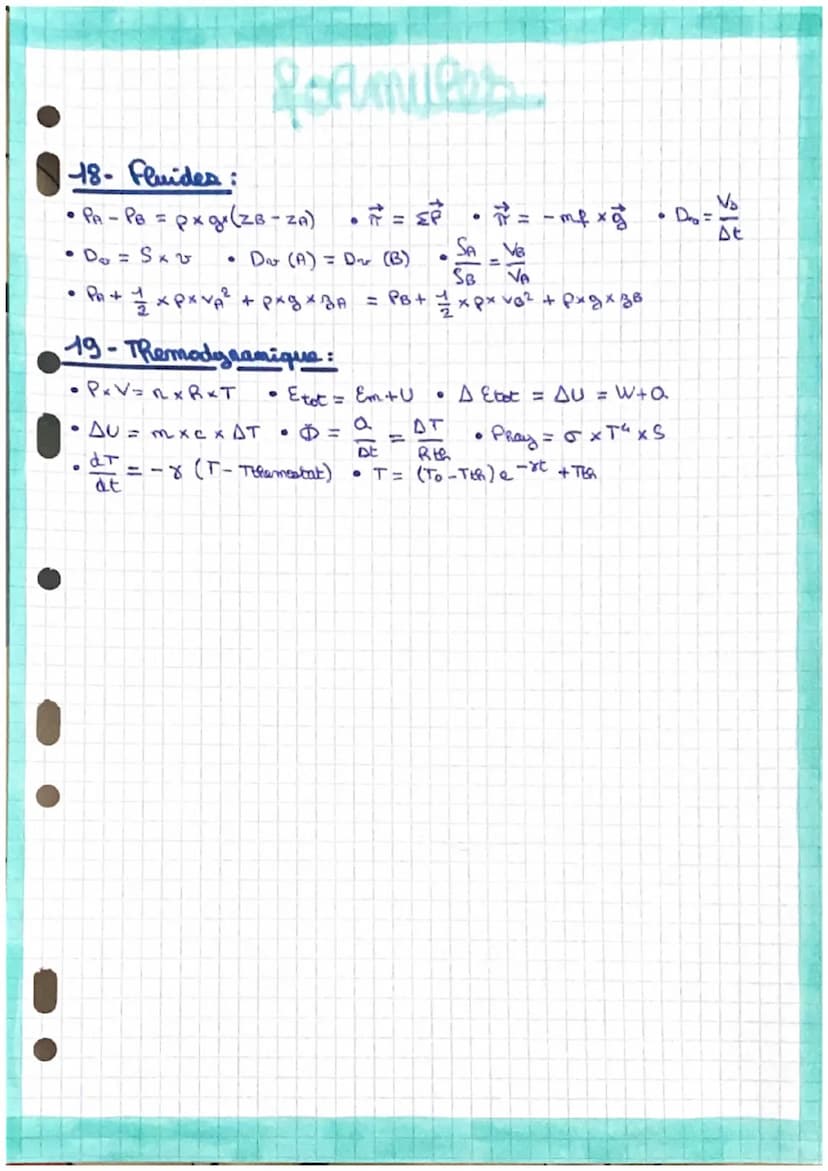 formules
18- Fluides :
• PA - PB = ρ × g × (ZB - ZA) • π⃗ = ΣP⃗ • π⃗ = - mf × g⃗ • Dv = Vs/Δt
• Dv = S × v • Dv (A) = Dv (B) • SA/SB = VB/VA
• PA + 1/2 × ρ × vA² + ρ × g × zA = PB + 1/2 × ρ × vB² + ρ × g × zB
19 - Themodynamique :
• P × V = n × R × T • Etot = Em + U • Δ Etot = ΔU = W + Q
• ΔU = m × c × ΔT • Φ = Q/Δt = ΔT/Rth • Pray = σ × T⁴ × S
• dT/dt = - γ (T - Tthemostat) • T = (T0 - Tth) e^-γt + Tth